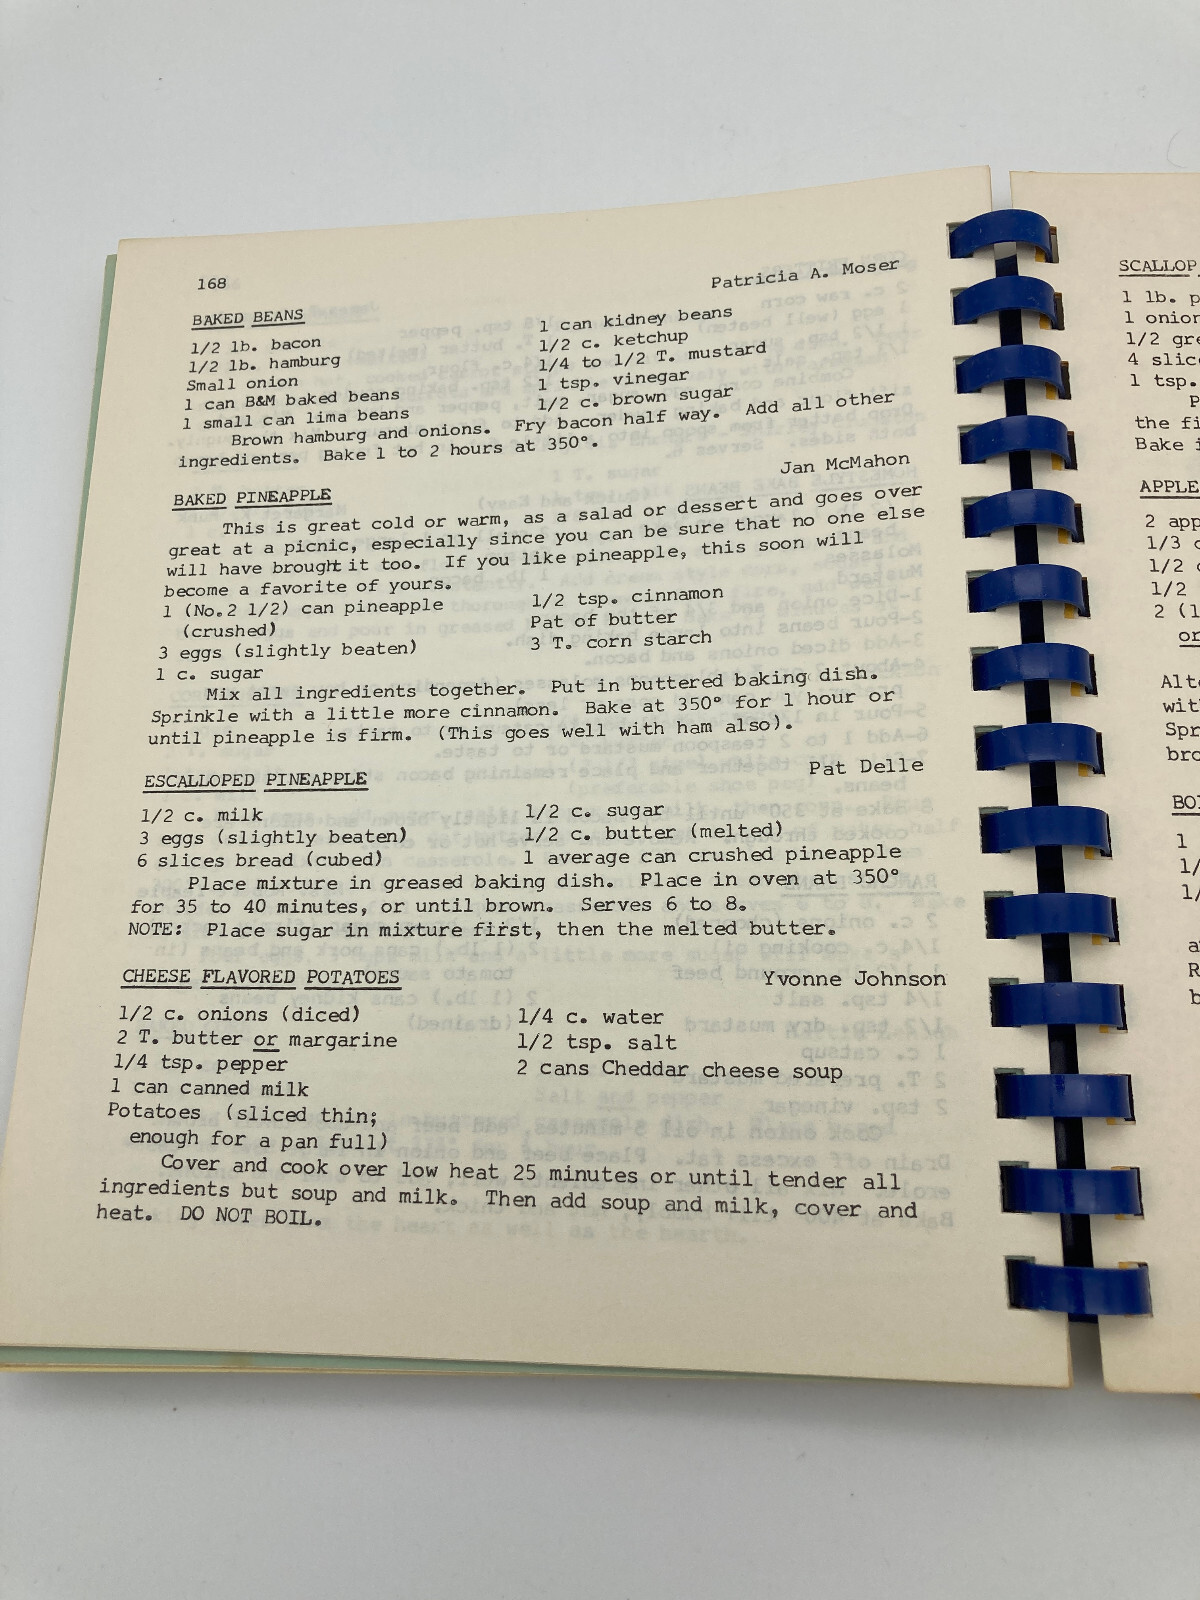 168
Patricia A. Moser
BAKED BEANS
1/2 lb. bacon
1/2 lb. hamburg
Small onion
1 can B&M baked beans
1 small can lima beans
1 can kidney beans
1/2 c. ketchup
1/4 to 1/2 T. mustard
1 tsp. vinegar
1/2 c. brown sugar
Brown hamburg and onions. Fry bacon half way. Add all other
ingredients. Bake 1 to 2 hours at 350°.
Jan McMahon
BAKED PINEAPPLE
This is great cold or warm, as a salad or dessert and goes over
great at a picnic, especially since you can be sure that no one else
will have brought it too. If you like pineapple, this soon will
become a favorite of yours.
1 (No.2 1/2) can pineapple
(crushed)
3 eggs (slightly beaten)
1 c. sugar
1/2 tsp. cinnamon
Pat of butter
3 T. corn starch
Mix all ingredients together. Put in buttered baking dish.
Sprinkle with a little more cinnamon. Bake at 350° for 1 hour or
until pineapple is firm. (This goes well with ham also).
Pat Delle
ESCALLOPED PINEAPPLE
1/2 c. milk
3 eggs (slightly beaten)
6 slices bread (cubed)
1/2 c. sugar
1/2 c. butter (melted)
1 average can crushed pineapple
Place mixture in greased baking dish. Place in oven at 350°
for 35 to 40 minutes, or until brown. Serves 6 to 8.
NOTE: Place sugar in mixture first, then the melted butter.
CHEESE FLAVORED POTATOES
Yvonne Johnson
1/2 c. onions (diced)
2 T. butter or margarine
1/4 tsp. pepper
1 can canned milk
Potatoes (sliced thin;
enough for a pan full)
1/4 c. water
1/2 tsp. salt
2 cans Cheddar cheese soup
Cover and cook over low heat 25 minutes or until tender all
ingredients but soup and milk. Then add soup and milk, cover and
heat. DO NOT BOIL.
SCALLOP
1 lb. p
1 onion
1/2 gre
4 slice
1 tsp.
P
the fi
Bake i
APPLE
2 app
1/3 c
1/2 c
1/2
2 (1
or
Alte
with
Spr
bro
BOI
1
1/
1/
a
R
b